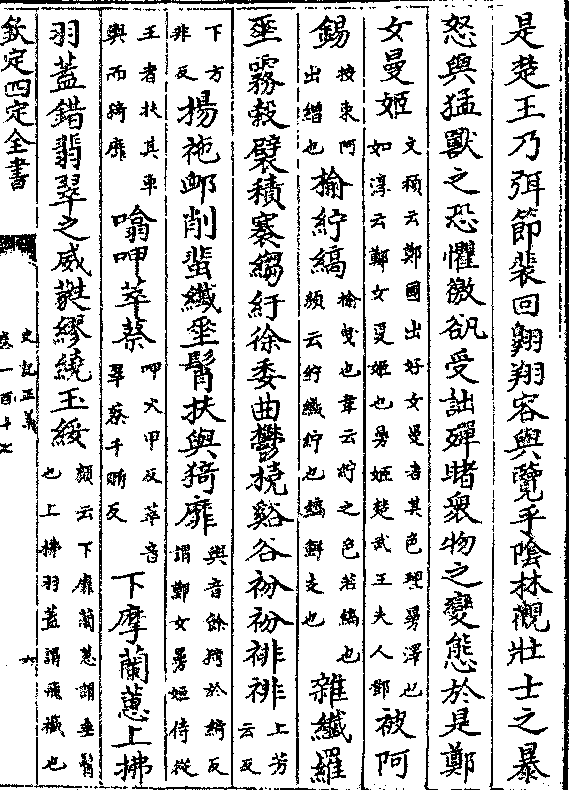 是楚王乃弭節裴回翺翔容與覽乎陰林觀壯士之暴
怒與猛獸之恐懼徼𠊬受詘殫睹衆物之變態於是鄭
女曼姬文穎云鄭國出好女曼者其色理曼澤也如淳云鄭女夏姬也曼姬楚武王夫人鄧被阿
錫按東阿出繒也揄紵縞揄曳也韋云紵之色若縞也顔云紵織紵也縞鮮支也雜纖羅
垂霧縠襞積褰縐紆徐委曲鬱橈谿谷衯衯裶裶上芳云反
下方非反揚袘䘏削蜚纖垂髾扶與猗靡與音餘猗於綺反謂鄭女曼姬侍從
王者扶其車輿而猗靡噏呷萃蔡呷火甲反萃音翠蔡千賄反下摩蘭蕙上拂
羽蓋錯翡翠之威蕤繆繞玉綏顔云下靡蘭蕙謂垂髾也上拂羽蓋謂飛襳也
欽定四定全書
史記正義
卷一百十七
六